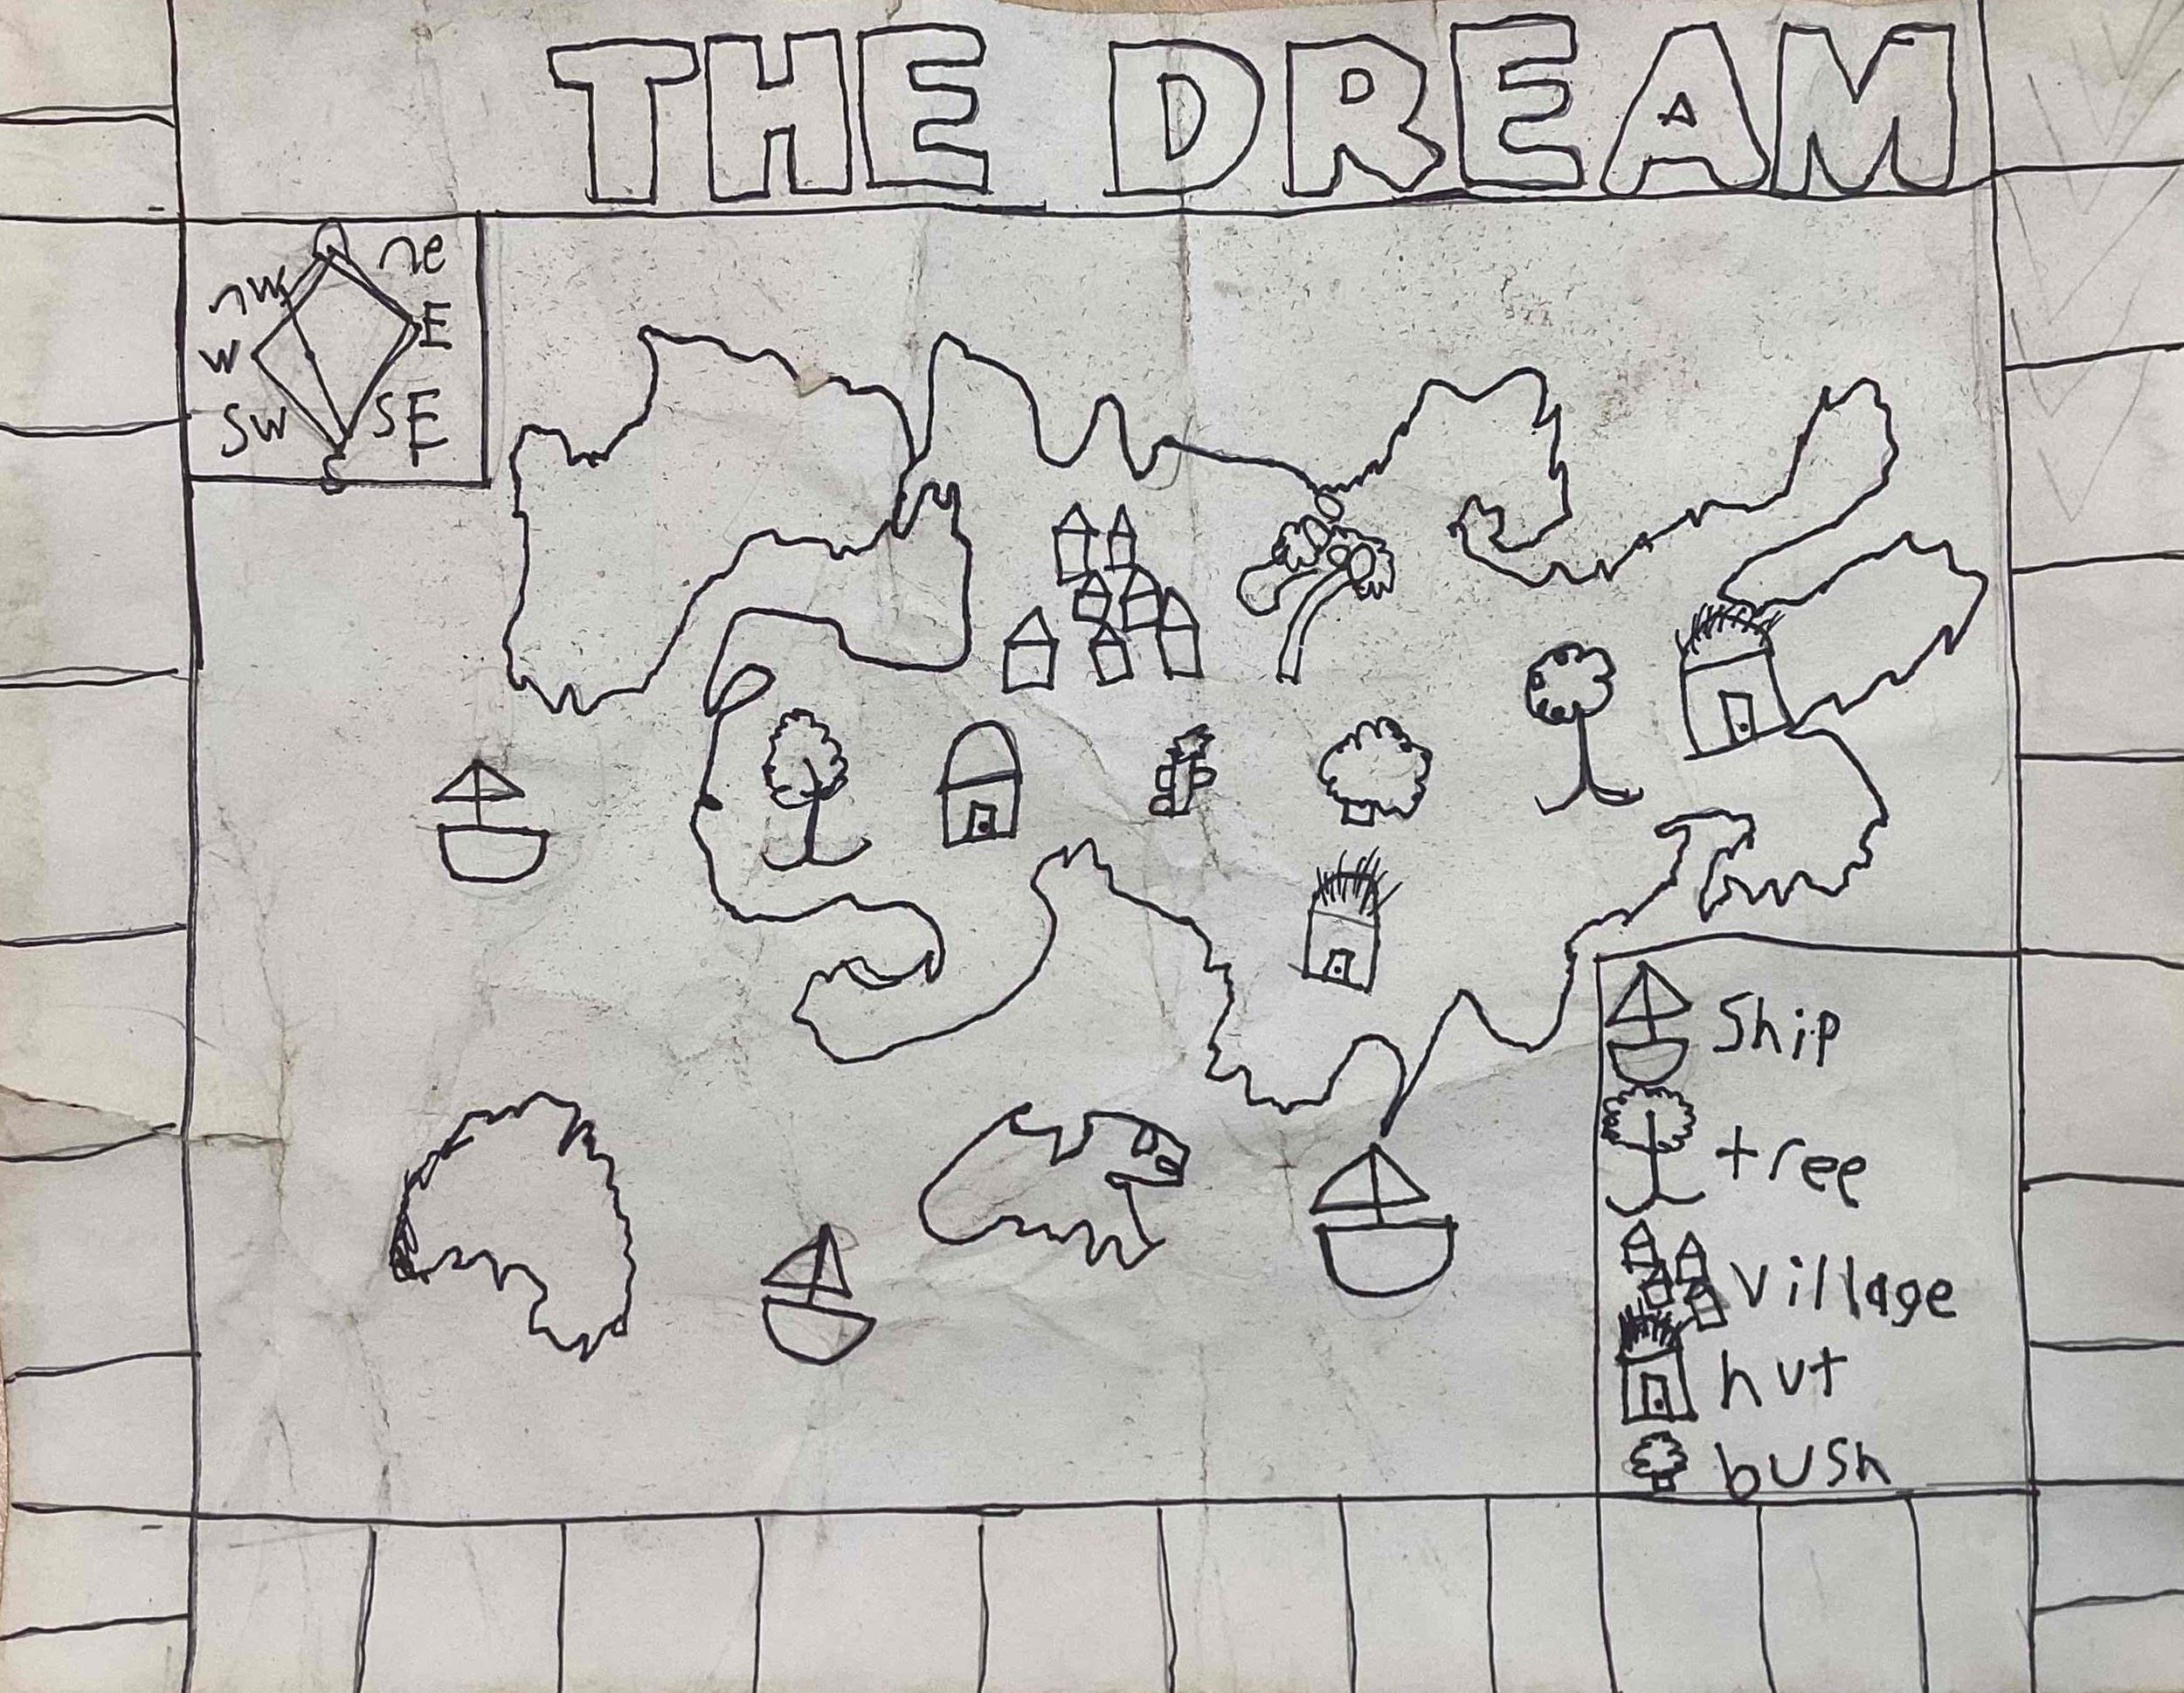 THE DREAM
ne
nw
E
w
sw
SE
Ship
tree
village
hut
bush